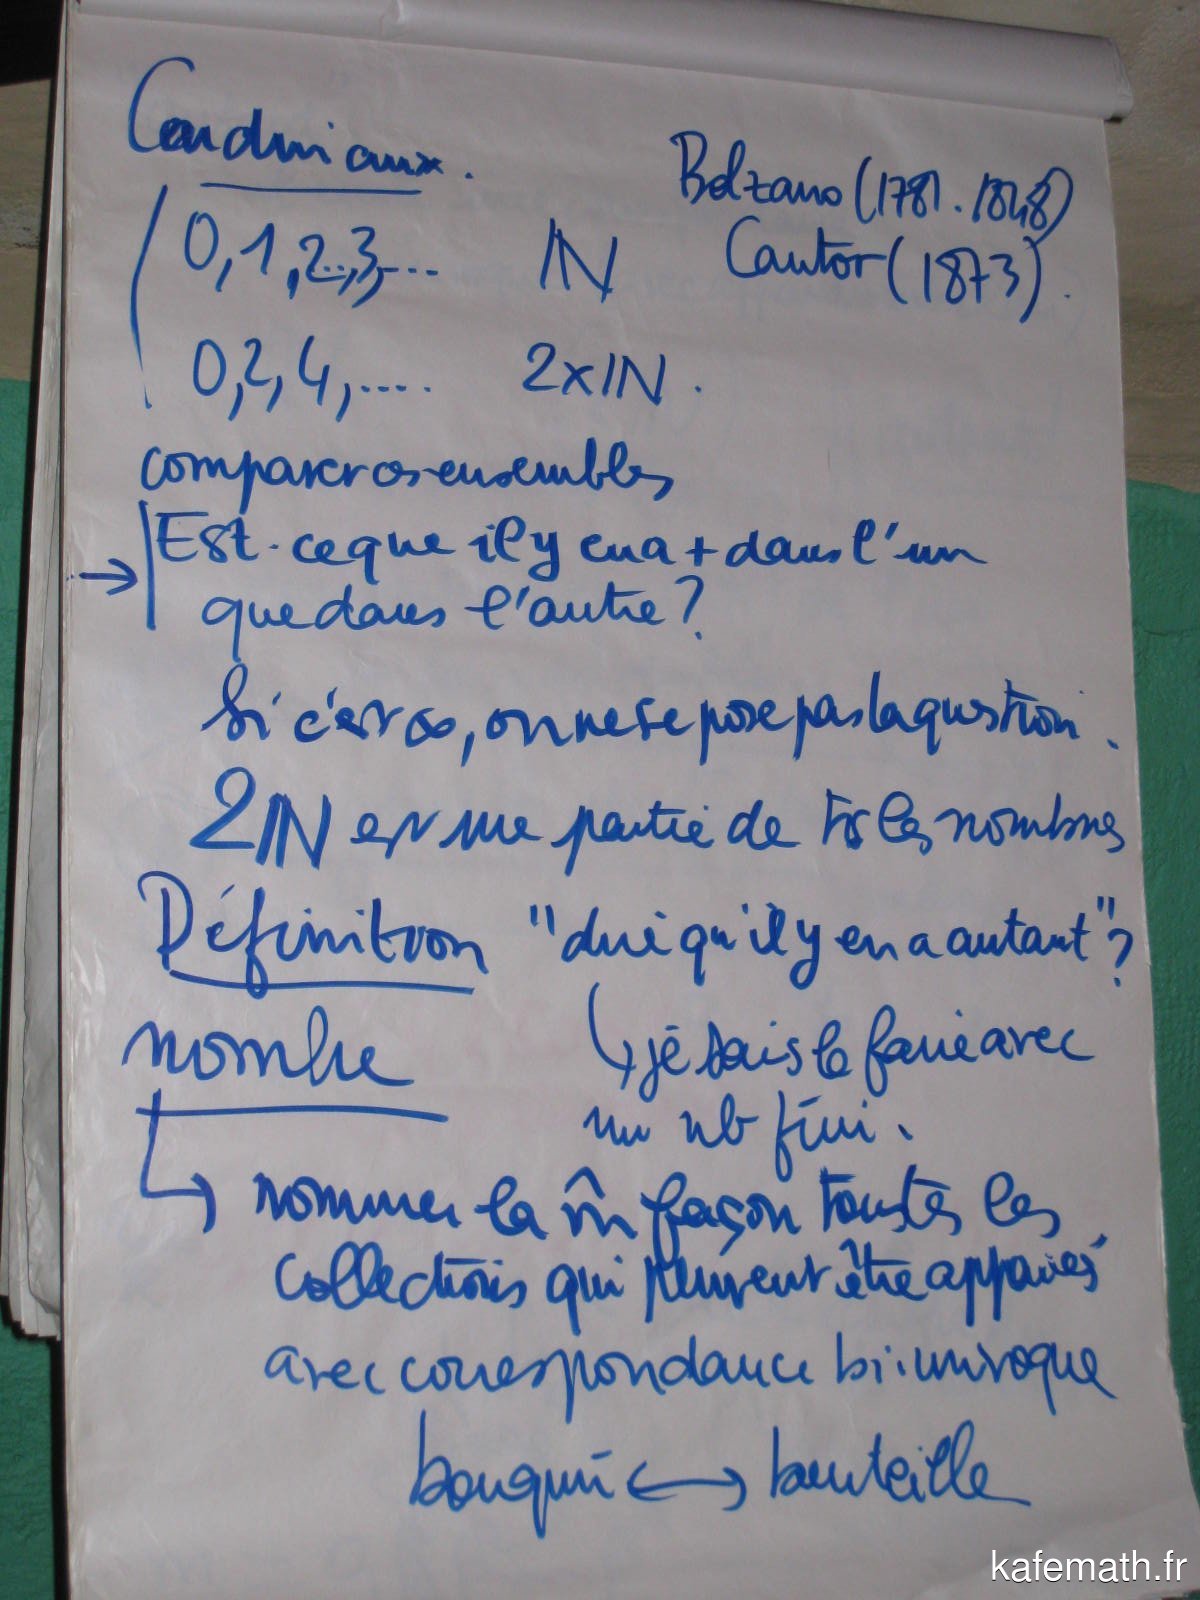 Cardinaux.
Bolzano (1781-1848)
0, 1, 2, 3, ... IN Cantor (1873).
0, 2, 4, .... 2xIN.
comparer ces ensembles
→ Est-ce que il y en a + dans l'un
que dans l'autre ?
Si c'est ∞, on ne se pose pas la question.
2IN est une partie de ts les nombres
Définition "dire qu'il y en a autant" ?
nombre ↳ je sais le faire avec
un nb fini.
↳ nommer la m̂ façon toutes les
collections qui peuvent être appariés
avec correspondance bi-univoque
bouquin ↔ bouteille
kafemath.fr